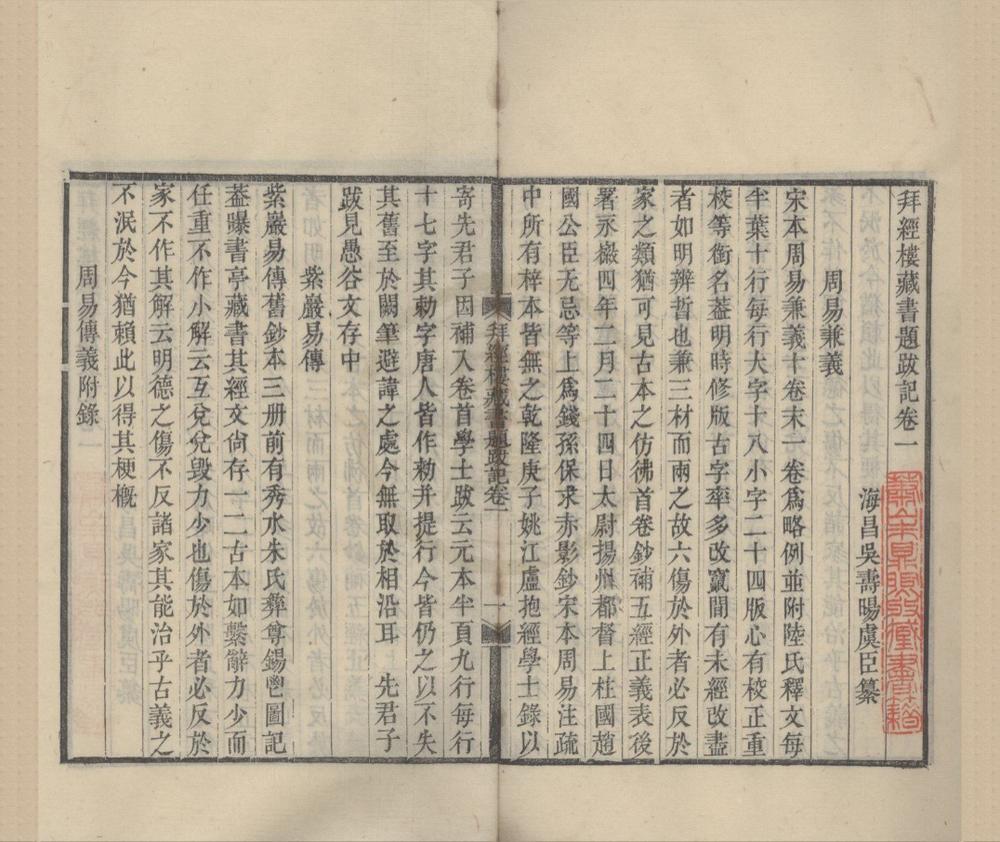 拜經樓藏書題跋記卷一
海昌吳壽暘虞臣纂
周易兼義
宋本周易兼義十卷末一卷爲略例並附陸氏釋文每
半葉十行每行大字十八小字二十四版心有校正重
校等銜名葢明時修版古字率多改竄閒有未經改盡
者如明辨晢也兼三材而兩之故六傷於外者必反於
家之類猶可見古本之仿彿首卷鈔補五經正義表後
署永徽四年二月二十四日太尉揚州都督上柱國趙
國公臣无忌等上爲錢孫保求赤影鈔宋本周易注疏
中所有梓本皆無之乾隆庚子姚江盧抱經學士錄以
拜經樓藏書題跋記卷一
一
寄先君子因補入卷首學士跋云元本半頁九行每行
十七字其勅字唐人皆作勑并提行今皆仍之以不失
其舊至於闕筆避諱之處今無取於相沿耳 先君子
跋見愚谷文存中
紫巖易傳
紫巖易傳舊鈔本三册前有秀水朱氏彝尊錫鬯圖記
葢曝書亭藏書其經文尙存一二古本如繫辭力少而
任重不作小解云互兌兌毀力少也傷於外者必反於
家不作其解云明德之傷不反諸家其能治乎古義之
不泯於今猶賴此以得其梗槪
周易傳義附錄